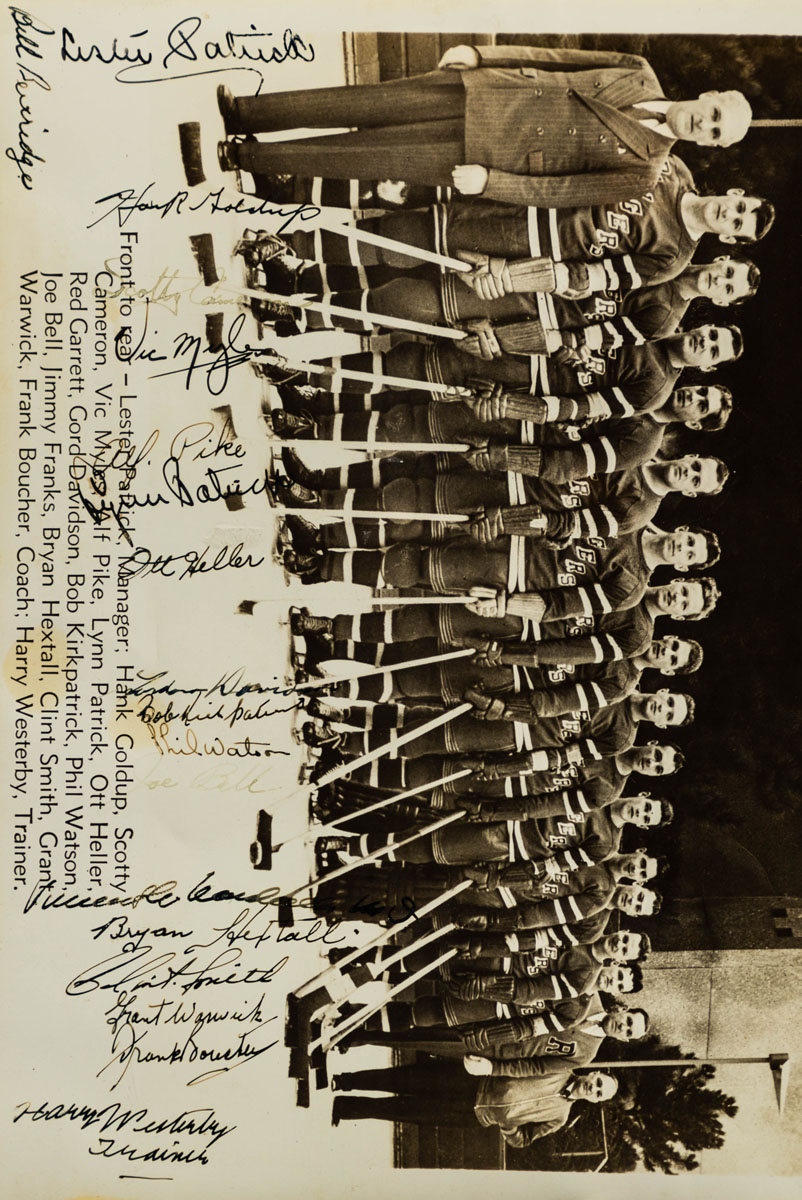 Lester Patrick
Bill Beveridge
Hank Goldup
Scotty
Vic Myles
Alf. Pike
Lynn Patrick
Ott Heller
Gordon Davidson
Bob Kirkpatrick
Phil Watson
Joe Bell
Bryan Hextall.
Clint. Smith
Grant Warwick
Frank Boucher
Harry Westerby
Trainer
Front to rear – Lester Patrick, Manager; Hank Goldup, Scotty
Cameron, Vic Myles, Alf Pike, Lynn Patrick, Ott Heller,
Red Garrett, Gord Davidson, Bob Kirkpatrick, Phil Watson,
Joe Bell, Jimmy Franks, Bryan Hextall, Clint Smith, Grant
Warwick, Frank Boucher, Coach; Harry Westerby, Trainer.